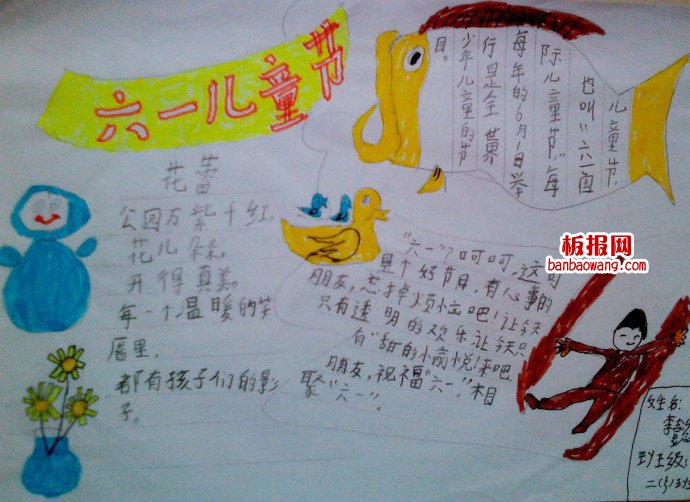 六一儿童节
花蕾
公园万紫千红,
花儿朵朵。
开得真美。
每一个温暖的笑
厝里,
都有孩子们的影
子。
儿童节,
也叫“六一国
际儿童节”,每
每年的6月1日举
行是全世界
少年儿童的节
目。
“六一”?呵呵,这可
是个好节目,有心事的
朋友,忘掉烦恼吧!让今天
只有透明的欢乐让今天只
有甜的小愉悦!来吧
朋友,祝福“六一”,相
聚“六一”。
板报网
banbaowang.com
姓名:
李
班级: